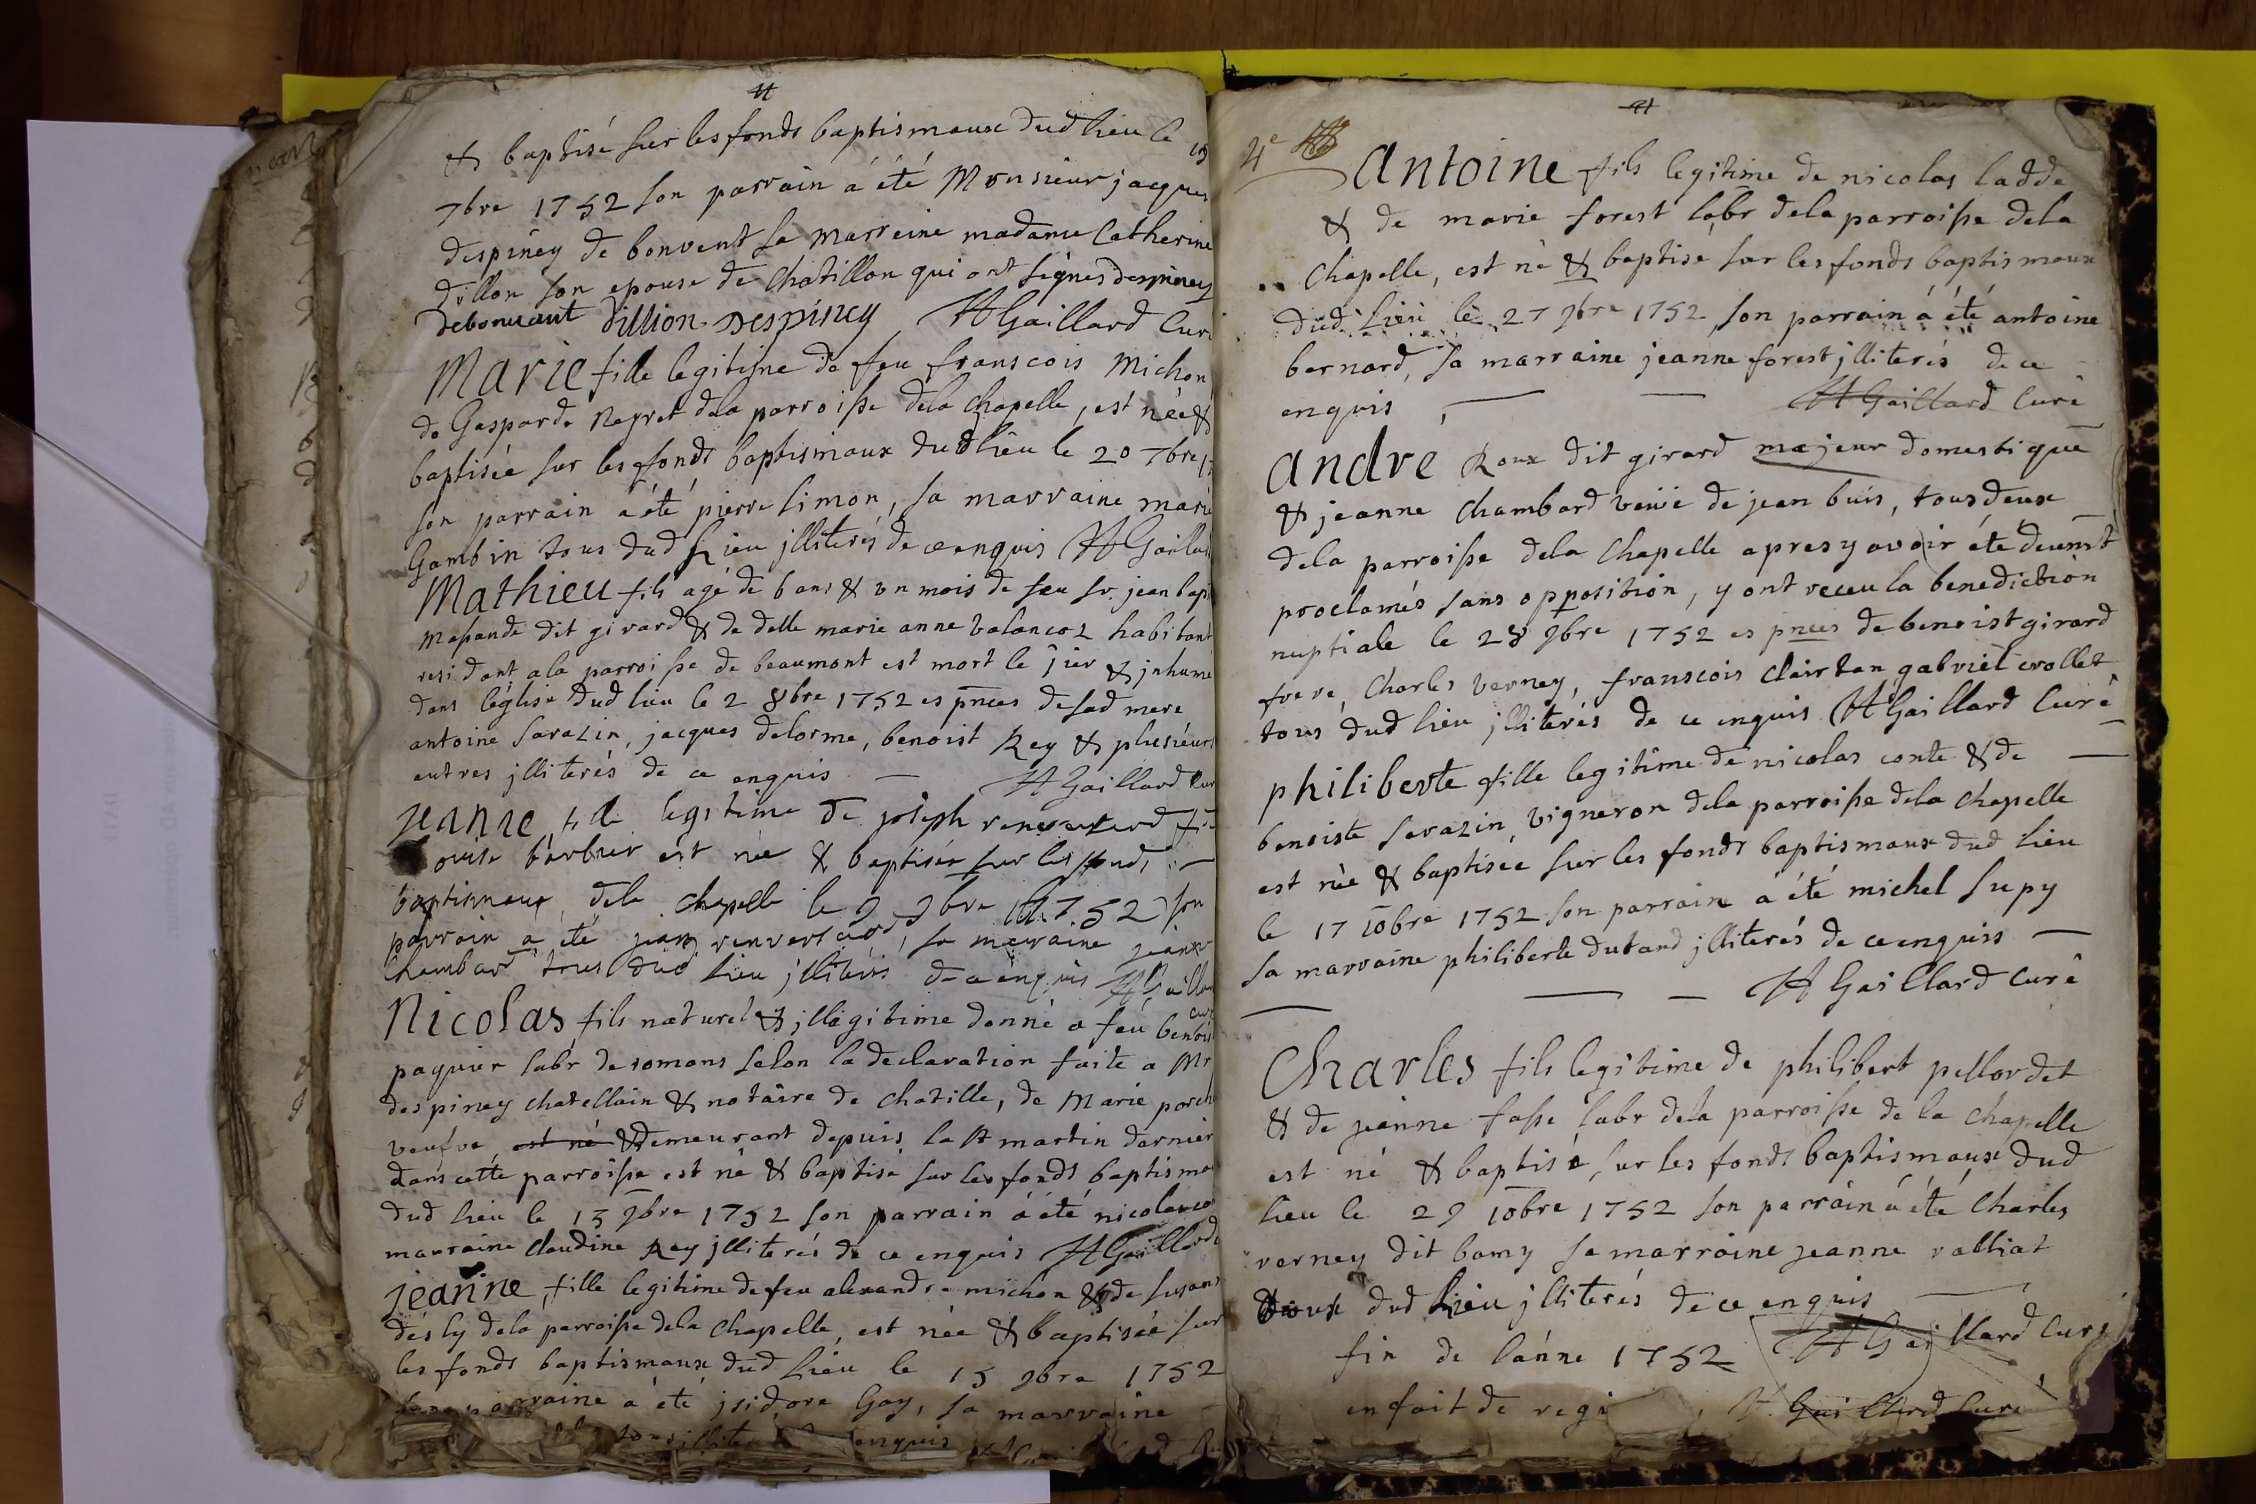 & baptisé sur les fonds baptismaux dud lieu le
7bre 1752 son parrain á été Monsieur jacques
despiney de bonvent sa marreine madame Catherine
dillon son epouse de Chatillon qui ont signes despiney
debonvant dillion despiney HGaillard Curé
Marie fille legitime de feu franscois Michon
de Gasparde Nayret dela parroisse dela Chapelle, est née &
baptisée sur les fonds baptismaux dud lieu le 20 7bre
son parrain á été pierre simon, sa marraine marie
Gambin tous dud Lieu jlliterés de ce enquis HGaillard
Mathieu fils agé de 6 ans & vn mois de feu sr. jean bapt
dit girard & de delle marie anne valancoz habitant
residant a la parroisse de beaumont est mort le jier & jnhumé
dans léglise dud lieu le 2 8bre 1752 es pnces de sad mere
antoine sarazin, jacques delorme, benoist Rey & plusieurs
autres jlliterés de ce enquis HGaillard Cur
Jeanne fille legitime de joseph
barbier est née & baptisée sur les fonds
baptismaux dela chapelle le 9 9bre 1752 son
parrain a été jean, sa marraine jeanne
Chambard tous dud lieu jlliterés de ce enquis HGaillard
cur
Nicolas fils naturel & jllegitime donné a feu benois
paquier labr de romans selon la declaration faite a Mr
despiney chatellain & notaire de chatille, de Marie
veufve est né & demeurant depuis la st martin darnier
dans cette parroisse est né & baptisé sur les fonds baptismau
dud lieu le 13 9bre 1752 son parrain á été nicolas
marraine Claudine Rey jlliterés de ce enquis HGaillard
jeanne fille legitime de feu alexandre michon & de susane
desly dela parroisse dela Chapelle, est née & baptisée sur
les fonds baptismaux dud Lieu le 15 9bre 1752
parraine á été jsidore Gay, sa marraine
enquis
4e
Antoine fils legitime de nicolas ladde
& de marie forest labr dela parroisse dela
Chapelle, est né & baptisé sur les fonds baptismaux
dud Lieu le 27 9bre 1752 son parrain á été antoine
bernard, sa marraine jeanne forest jlliterés de ce
enquis, HGaillard Curé
André Roux dit girard majeur domestique
& jeanne Chambard veüe de jean buis, tous deux
dela parroisse dela Chapelle apres y avoir été deuemt
proclamés sans opposition, y ont receu la benediction
nuptiale le 28 9bre 1752 es pnces de benoist girard
frere, Charles verney, franscois Clairtan gabriel crollet
tous dud lieu jlliterés de ce enquis HGaillard Curé
philiberte fille legitime de nicolas conte & de
benoiste sarazin, vigneron dela parroisse dela Chapelle
est née & baptisée sur les fonds baptismaux dud lieu
le 17 10bre 1752 son parrain a été michel supy
sa marraine philiberte dutand jlliterés de ce enquiss
HGaillard Curé
Charles fils legitime de philibert pellordet
& de jeanne fasse labr dela parroisse de la Chapelle
est né & baptisé sur les fonds baptismaux dud
lieu le 29 10bre 1752 son parrain á été Charles
verney dit bamy sa marraine jeanne valliat
dud Lieu jlliterés de ce enquis
HGaillard Curé
fin de lánne 1752
enfait de regi Gaillard Curé